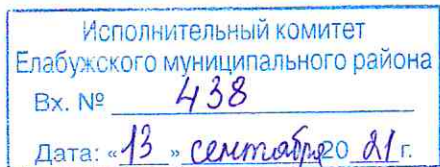 Исполнительный комитет
Елабужского муниципального района
Вх. № 438
Дата: «13» сентября 20 21 г.